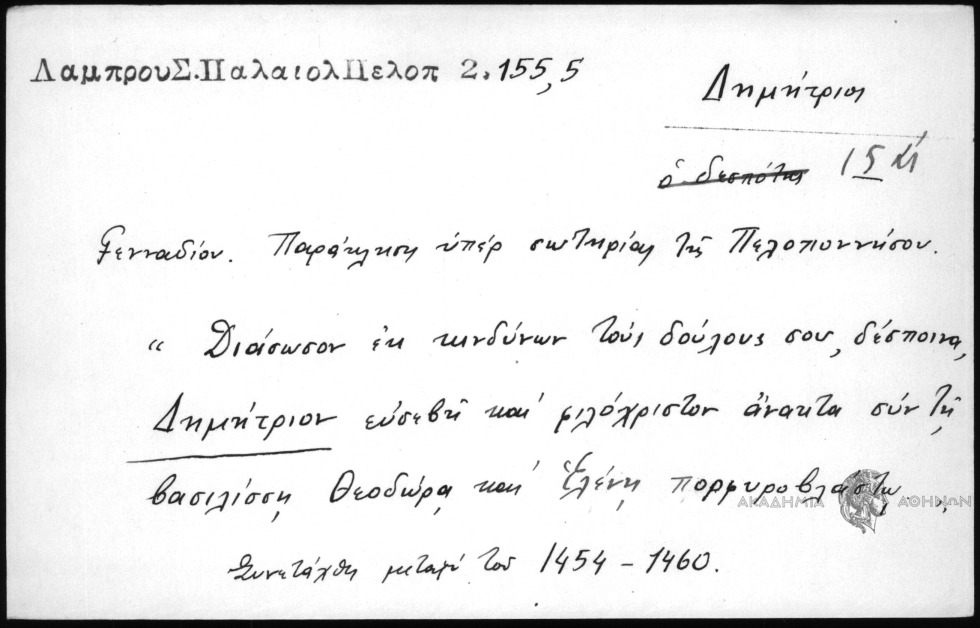 ΛαμπρουΣ.ΠαλαιολΠελοπ 2,155,5
Δημήτριος
ὁ δεσπότης 15
Γενναδίου. Παράκλησις ὑπέρ σωτηρίας τῆς Πελοποννήσου.
“ Διάσωσον ἐκ κινδύνων τούς δούλους σου, δέσποινα,
Δημήτριον εὐσεβῆ καί φιλόχριστον ἄνακτα σύν τῇ
βασιλίσσῃ Θεοδώρᾳ καί Ἑλένῃ πορφυροβλάστῳ
ΑΚΑΔΗΜΙΑ ΑΘΗΝΩΝ
Συνετάχθη μεταξύ τοῦ 1454 – 1460.